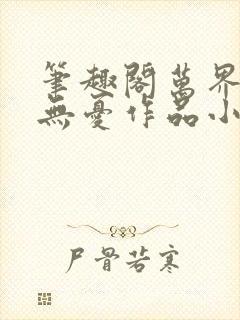 筆趣閣萬界
無憂作品小
尸骨若寒